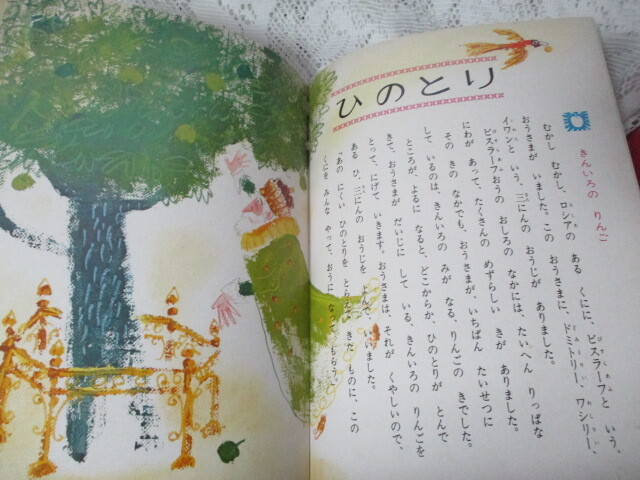 ひのとり
きんいろの りんご
むかし むかし、ロシアの ある くにに、ビスラーフと いう、
おうさまが いました。この おうさまに、ドミトリー、ワシリー、
イワンと いう、三にんの おうじが ありました。
ビスラーフおうの おしろの なかには、たいへん りっぱな
にわが あって、たくさんの めずらしい きが ありました。
その きの なかでも、おうさまが、いちばん たいせつに
して いるのは、きんいろの みが なる、りんごの きでした。
ところが、よるに なると、どこからか、ひのとりが とんで
きて、おうさまが だいじに して いる、きんいろの りんごを
とって、にげて いきます。おうさまは、それが くやしいので、
ある ひ、三にんの おうじを よんで、いいました。
「あの にくい ひのとりを とらえて きた ものに、この
くにを みんな やって、おうに なって もらう。